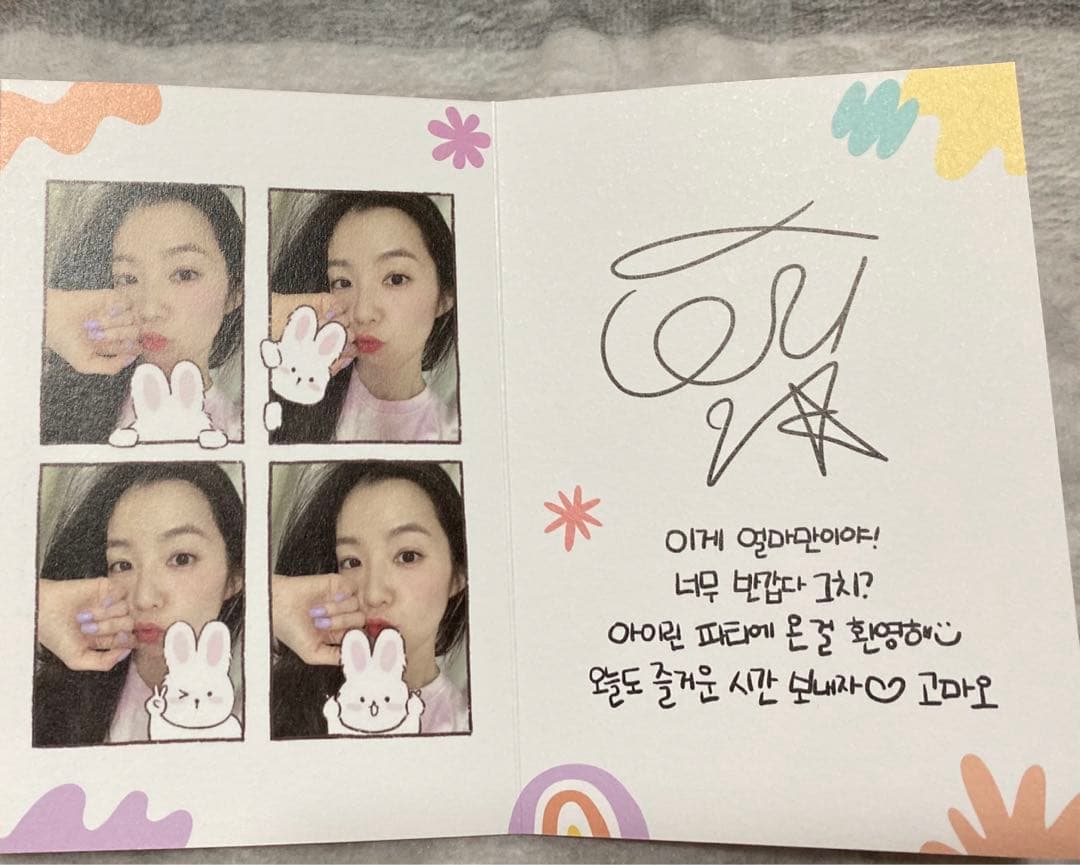 이게 얼마만이야!
너무 반갑다 그치?
아이린 파티에 온 걸 환영해
오늘도 즐거운 시간 보내자♡ 고마오